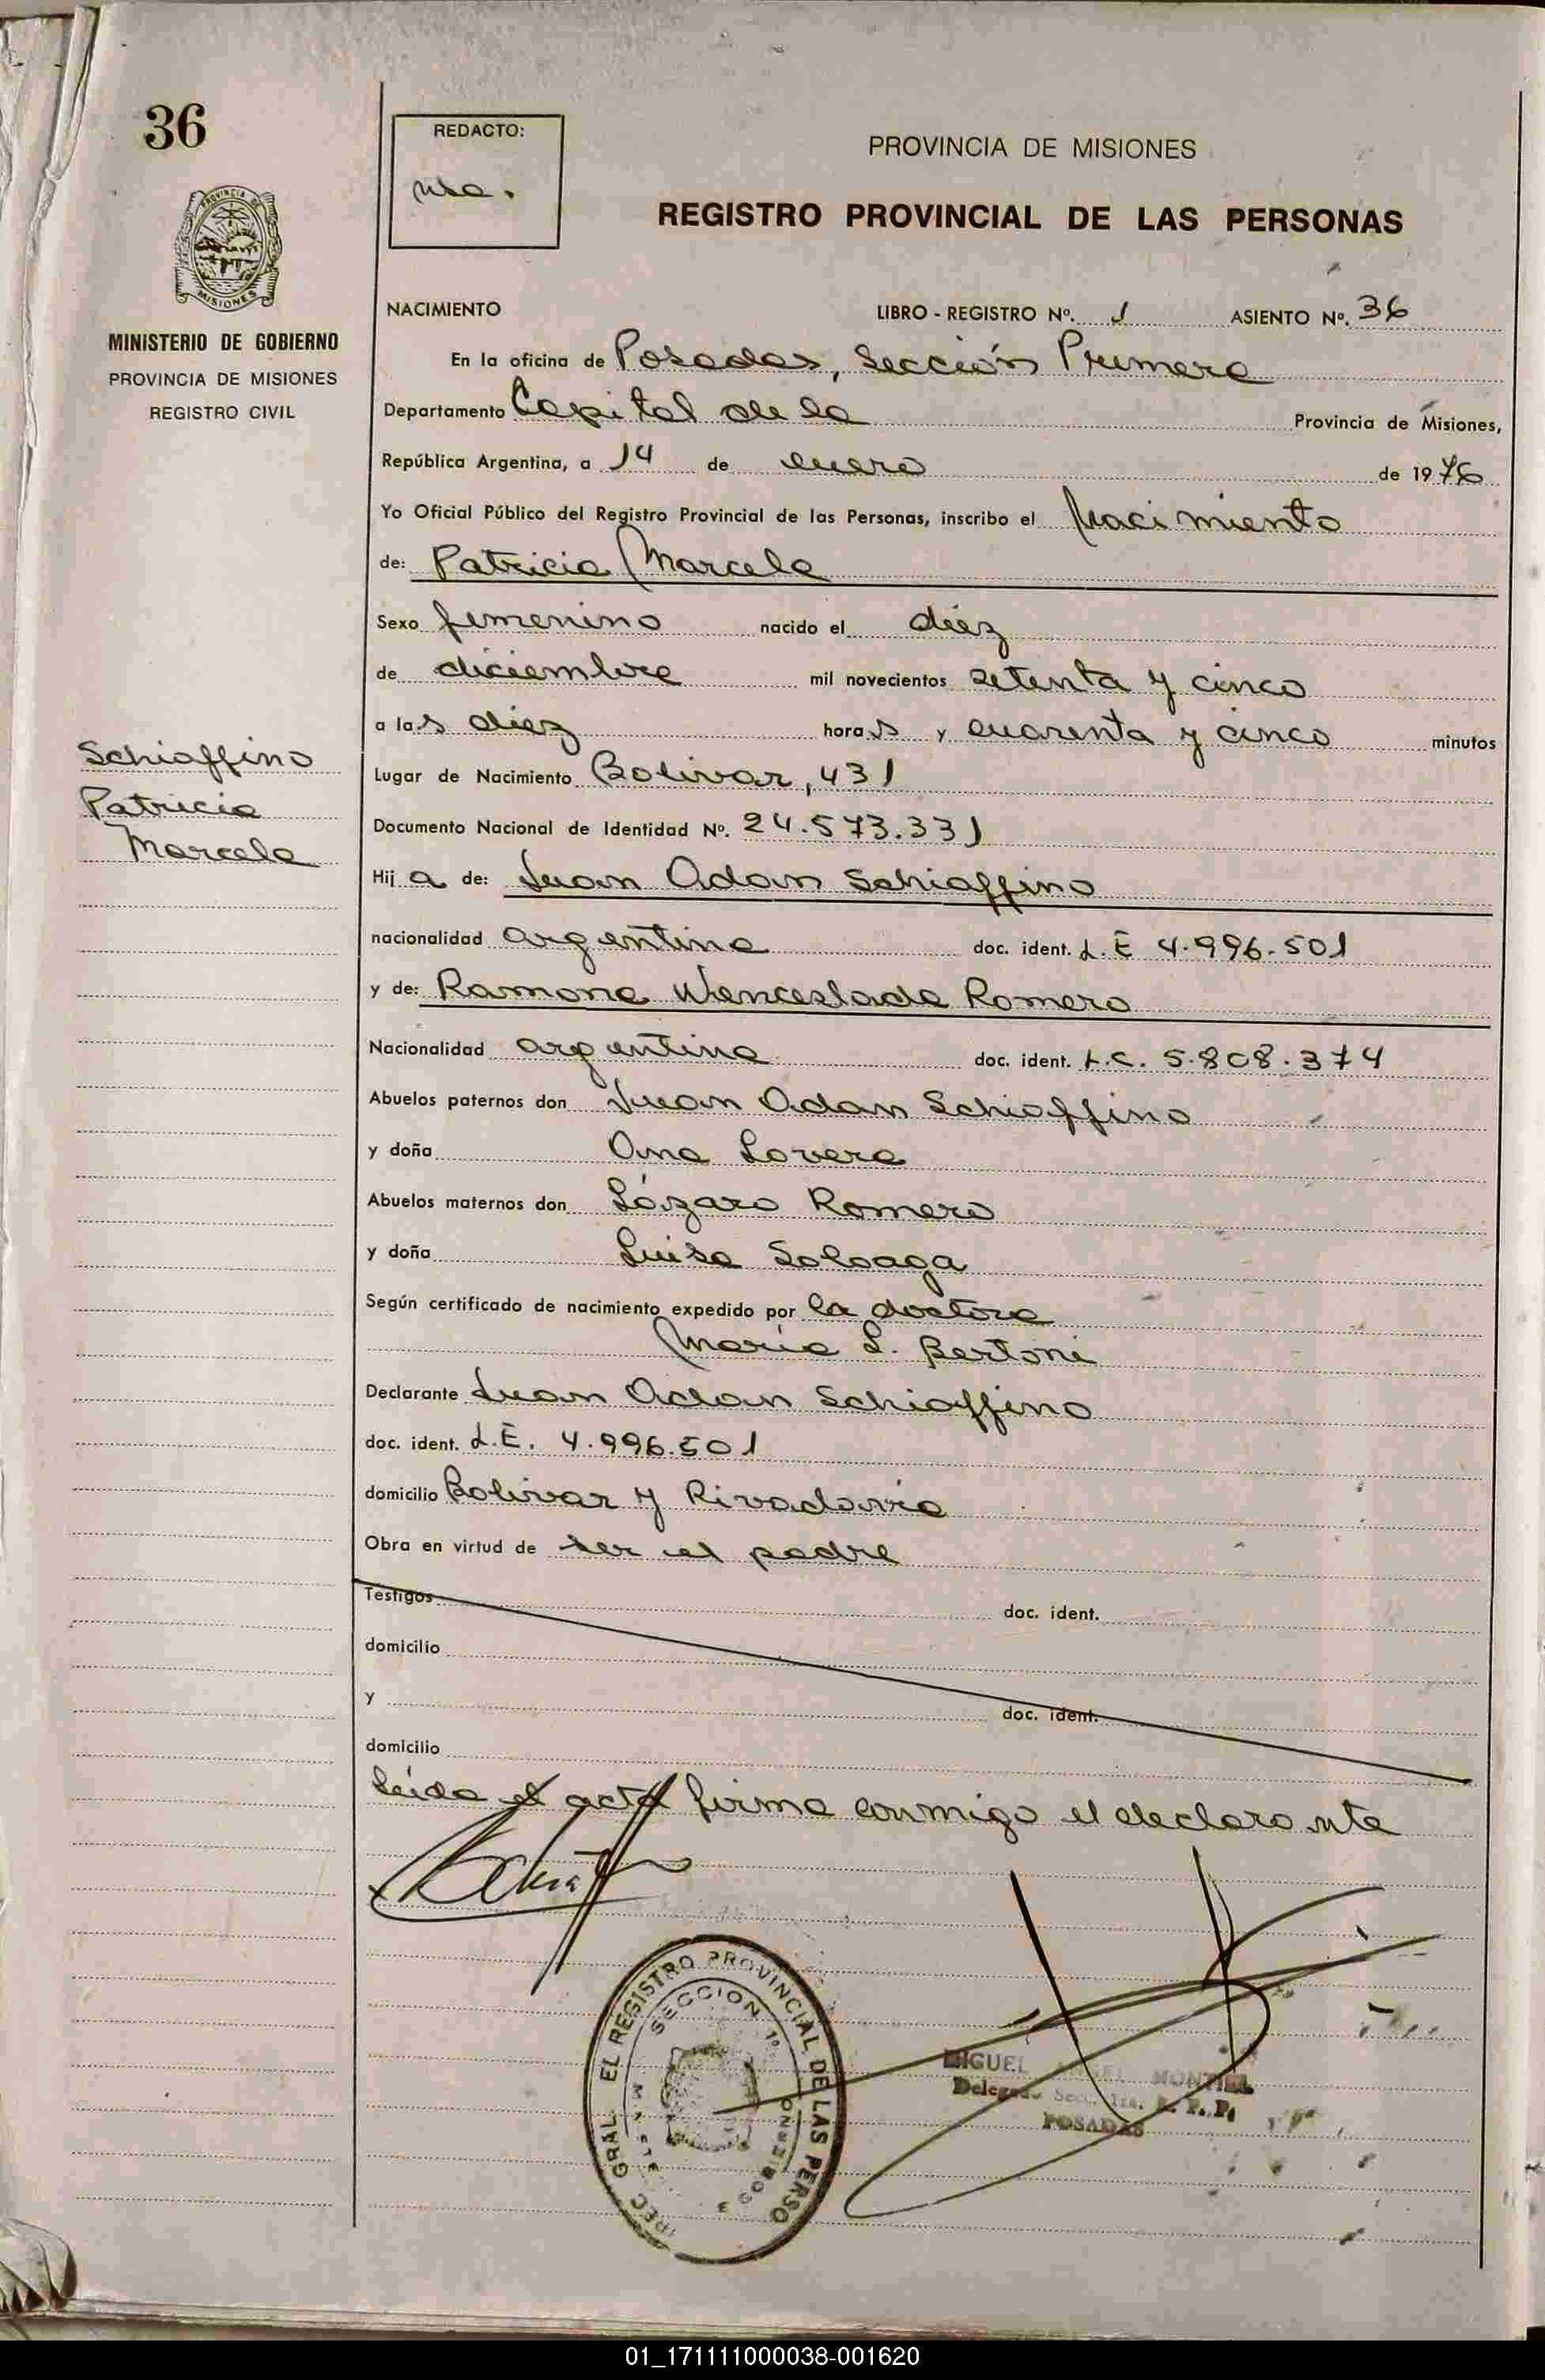 36
REDACTO:
PROVINCIA DE MISIONES
REGISTRO PROVINCIAL DE LAS PERSONAS
PROVINCIA DE
MISIONES
MINISTERIO DE GOBIERNO
PROVINCIA DE MISIONES
REGISTRO CIVIL
NACIMIENTO LIBRO - REGISTRO Nº. 1 ASIENTO Nº. 36
En la oficina de Posadas, Sección Primera
Departamento Capital de la Provincia de Misiones,
República Argentina, a 14 de enero de 1976
Yo Oficial Público del Registro Provincial de las Personas, inscribo el Nacimiento
de: Patricia Marcela
Sexo femenino nacido el diez
de diciembre mil novecientos setenta y cinco
a las diez horas y cuarenta y cinco minutos
Schiaffino
Patricia
Marcela
Lugar de Nacimiento Bolivar, 431
Documento Nacional de Identidad Nº. 24.573.331
Hija de: Juan Adan Schiaffino
nacionalidad argentina doc. ident. L.E 4.996.501
y de: Ramona Wenceslada Romero
Nacionalidad argentina doc. ident. L.C. 5.808.374
Abuelos paternos don Juan Adan Schiaffino
y doña Ana Lovera
Abuelos maternos don Lázaro Romero
y doña Luisa Soloaga
Según certificado de nacimiento expedido por la doctora
María L. Bertoni
Declarante Juan Adan Schiaffino
doc. ident. L.E. 4.996.501
domicilio Bolivar y Rivadavia
Obra en virtud de ser el padre
Testigos doc. ident.
domicilio
y doc. ident.
domicilio
Leída el acta firma conmigo el declarante
EL REGISTRO PROVINCIAL DE LAS PERSO
SECCION 1º
GRAL.
MIGUEL ANGEL MONTIEL
Delegado Secc. 1ra. R. P. P.
POSADAS
01_171111000038-001620